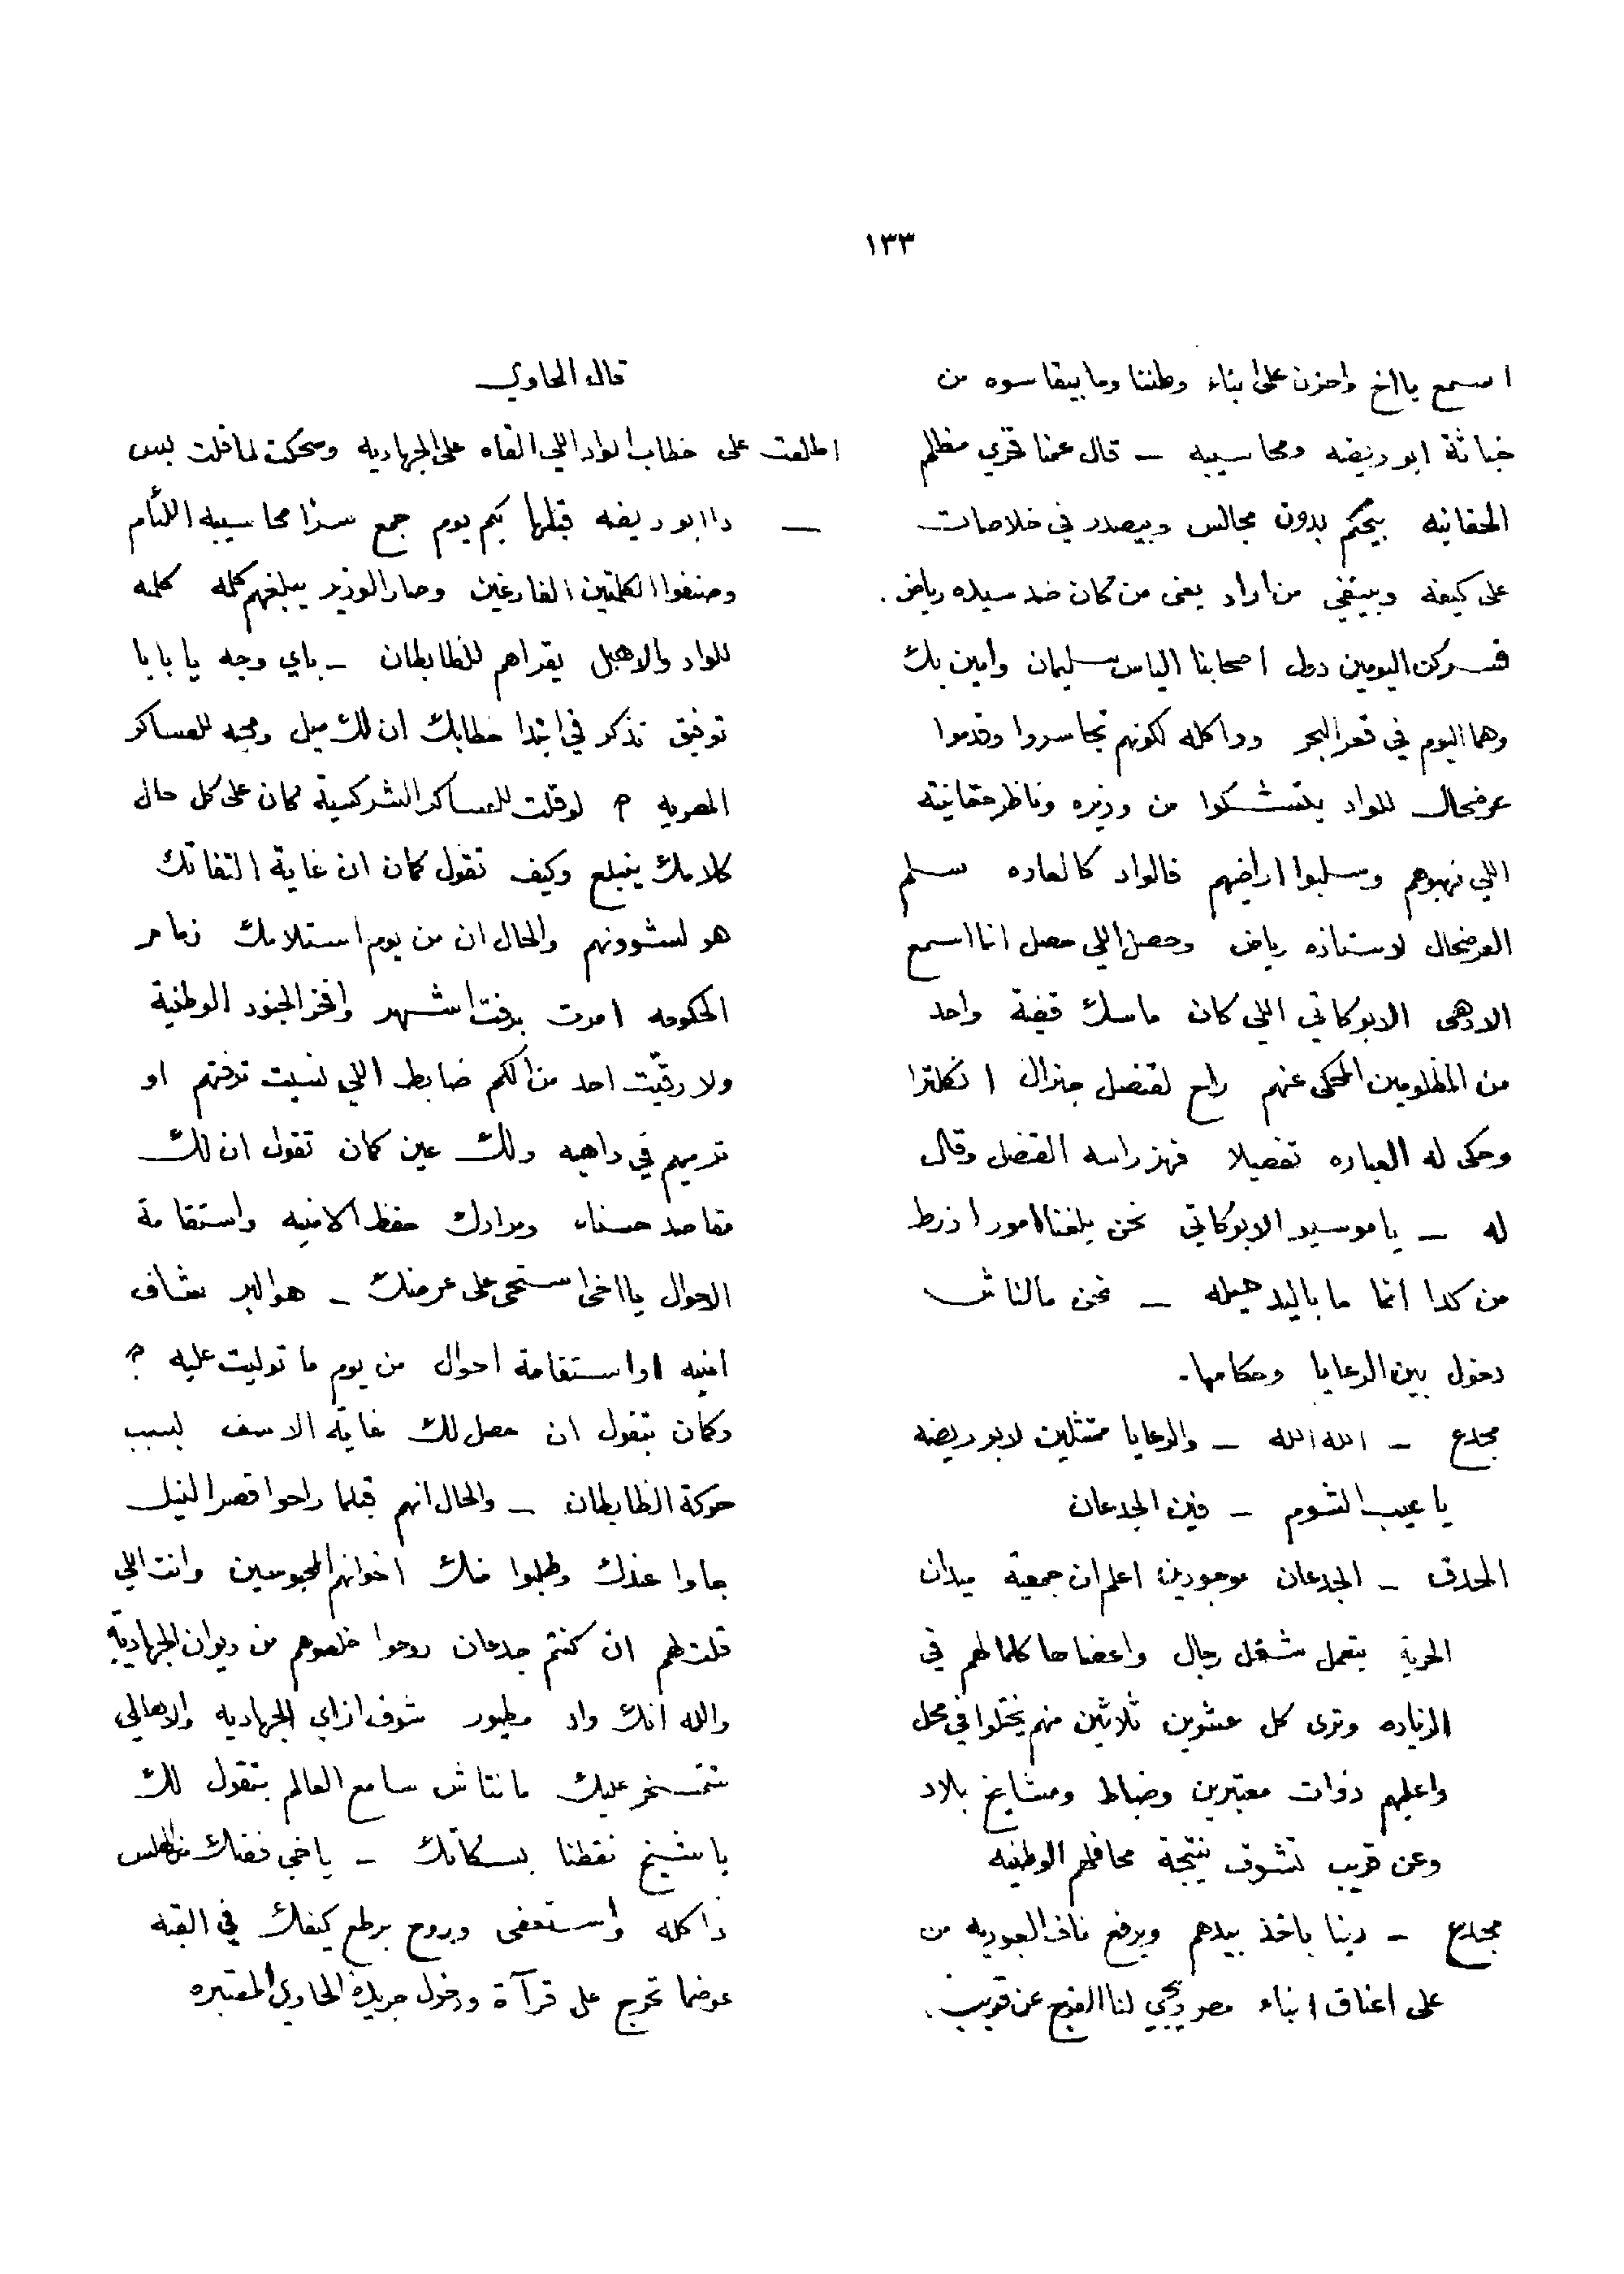 ١٣٣
اسمع يا اخ واحزن على ابناء وطننا وما بيقاسوه من
خباثة ابو ريضه ومحاسيبه — قال عمنا قدري مظلم
الحقانيه بيحكم بدون مجالس وبيصدر في خلاصات
على كيفه وبينفي من اراد يعني من كان ضد سيده رياض .
فسركن اليومين دول اصحابنا الياس سليمان وامين بك
وهما اليوم في قعر البحر ودا كله لكونهم تجاسروا وقدموا
عرضحال للواد بيتشكوا من وزيره وناظر حقانيته
اللي نهبوهم وسلبوا اراضيهم فالواد كالعاده سلم
العرضحال لاستاذه رياض وحصل اللي حصل انما اسمع
الادهى الابوكاتي اللي كان ماسك قضية واحد
من المظلومين المحكى عنهم راح لقنصل جنرال انكلترا
وحكى له العباره تفصيلا فهز راسه القنصل وقال
له — يا موسيو الابوكاتي نحن بلغنا امور ازرط
من كدا انما ما باليد حيله — نحن مالناش
دخول بين الرعايا وحكامها .
مجدع — الله الله — والرعايا ممتثلين لابو ريضه
يا عيب الشوم — فين الجدعان
الحدق — الجدعان موجودين اعلم ان جمعية ميدان
الحرية بتعمل شغل رجال واعضاها كلما لهم في
الزياده وترى كل عشرين ثلاثين منهم يختلوا في محل
واغلبهم ذوات معتبرين وضباط ومشايخ بلاد
وعن قريب تشوف نتيجة محافلهم الوطنيه
مجدع — ربنا ياخذ بيدهم ويرفع ناف العبوديه من
على اعناق ابناء مصر ويجي لنا الفرج عن قريب .
قال الحاوي
اطلعت على خطاب الواد اللي القاه على الجهاديه وضحكت لما قلت بس
— دا ابو ريضه قبلها بكم يوم جمع سرا محاسيبه اللئام
وصنفوا الكلمتين الفارغين وصار الوزير يبلغهم كلمه كلمه
للواد والاهبل يقراهم للظابطان — باي وجه يا بابا
توفيق تذكر في ابتدا خطابك ان لك ميل ومحبه للعساكر
المصريه ؟ لو قلت للعساكر الشركسية كان على كل حال
كلامك ينبلع وكيف تقول كمان ان غاية التفاتك
هو لشوونهم والحال ان من يوم استلامك زمام
الحكومه امرت برفت اشهر وافخر الجنود الوطنية
ولا رقيت احد من الكم ضابط اللي نسيت ترفتهم او
ترميهم في داهيه ولك عين كمان تقول ان لك
مقاصد حسناء ومرادك حفظ الامنيه واستقامة
الاحوال يا اخي استحى على عرضك — هو البر شاف
امنيه او استقامة احوال من يوم ما توليت عليه ؟
وكمان بتقول ان حصل لك غاية الاسف بسبب
حركة الظابطان — والحال انهم قبلما راحوا قصر النيل
جاوا عندك وطلبوا منك اخوانهم المحبوسين وانت اللي
قلت لهم ان كنتم جدعان روحوا خلصوهم من ديوان الجهادية
والله انك واد مطيور شوف ازاي الجهاديه والاهالي
تتمسخر عليك ما نتاش سامع العالم بتقول لك
يا شيخ نقطنا بسكاتك — يا خي فضك من الهلس
دا كله واستعفى وروح برطع كيفك في القبه
عوضما تحرج على قرآة ودخول جريدة الحاوي المعتبره